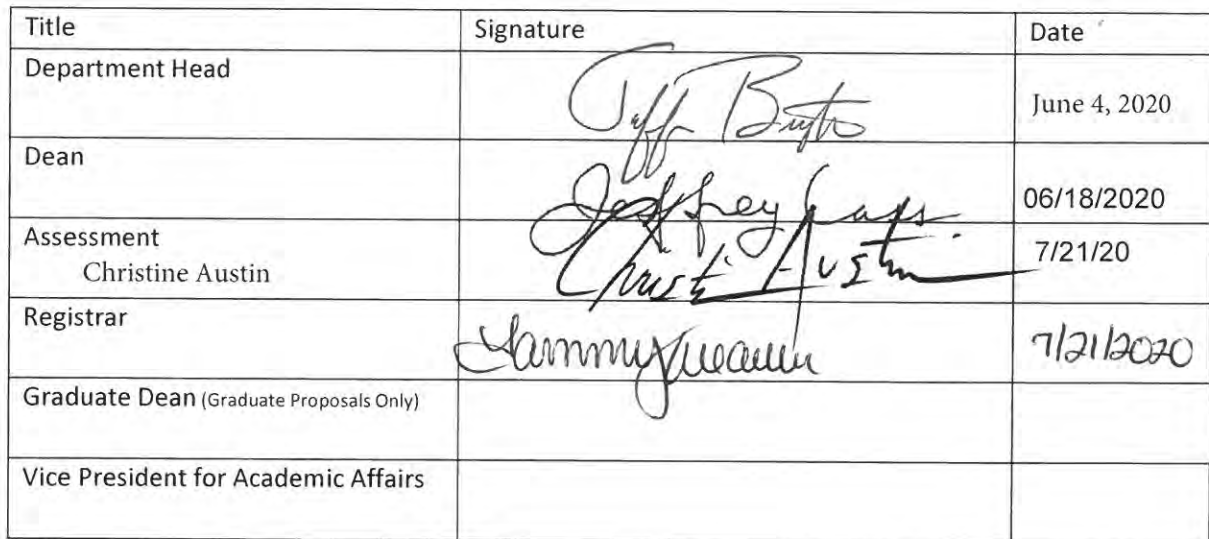 Title Signature Date
Department Head Jeff June 4, 2020
Dean Jeffrey 06/18/2020
Assessment 7/21/20
Christine Austin Christi Austin
Registrar Tammy 7/21/2020
Graduate Dean (Graduate Proposals Only)
Vice President for Academic Affairs